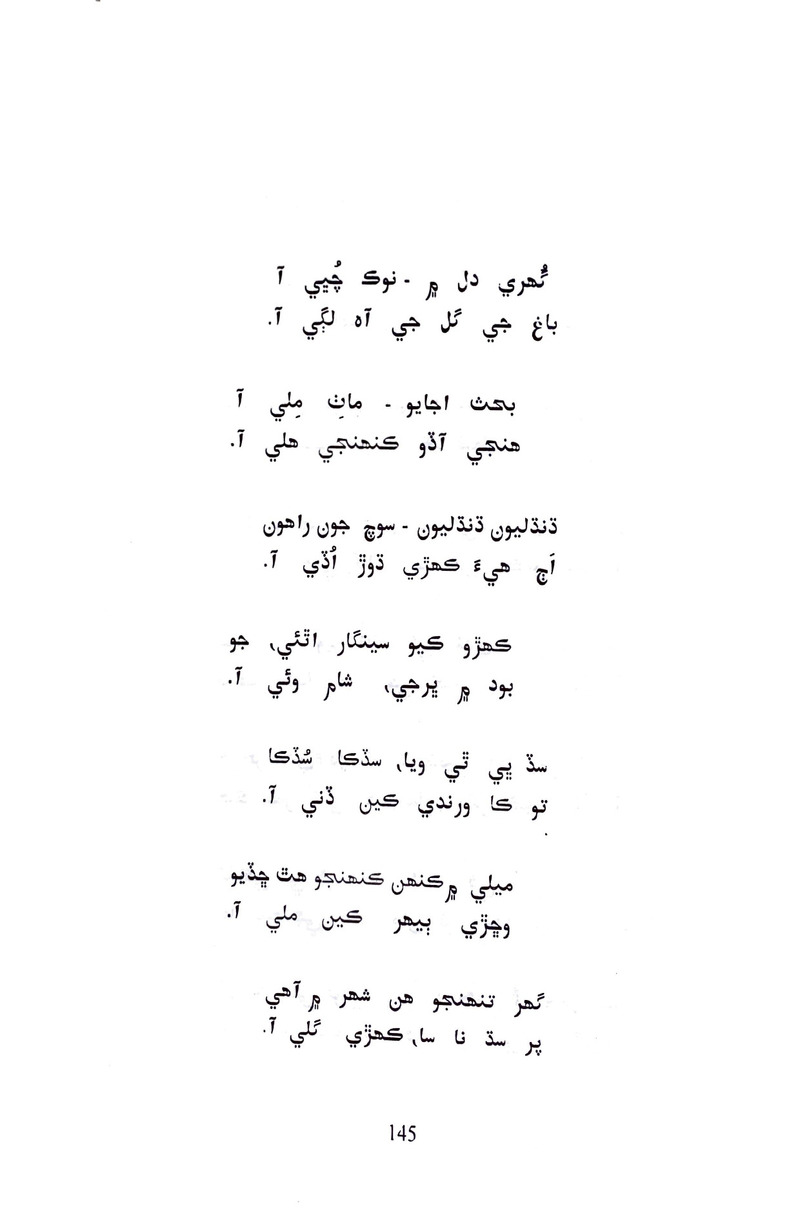 گُهري دل ۾ - نوڪ چُڀي آ
باغ جي گل جي آه لڳي آ.
بحث اجايو - ماٺِ مِلي آ
هنجي آڏو ڪنهنجي هلي آ.
ڌنڌليون ڌنڌليون - سوچ جون راهون
اَڄ هيءَ ڪهڙي ڌوڙ اُڏي آ.
ڪهڙو ڪيو سينگار اٿئي، جو
بود ۾ ڀرجي، شام وئي آ.
سڏ ڀي ٿي ويا، سڏڪا سُڏڪا
تو ڪا ورندي ڪين ڏني آ.
ميلي ۾ ڪنهن ڪنهنجو هٿ ڇڏيو
وڇڙي ٻيهر ڪين ملي آ.
گهر تنهنجو هن شهر ۾ آهي
پر سڌ نا سا، ڪهڙي گلي آ.
145